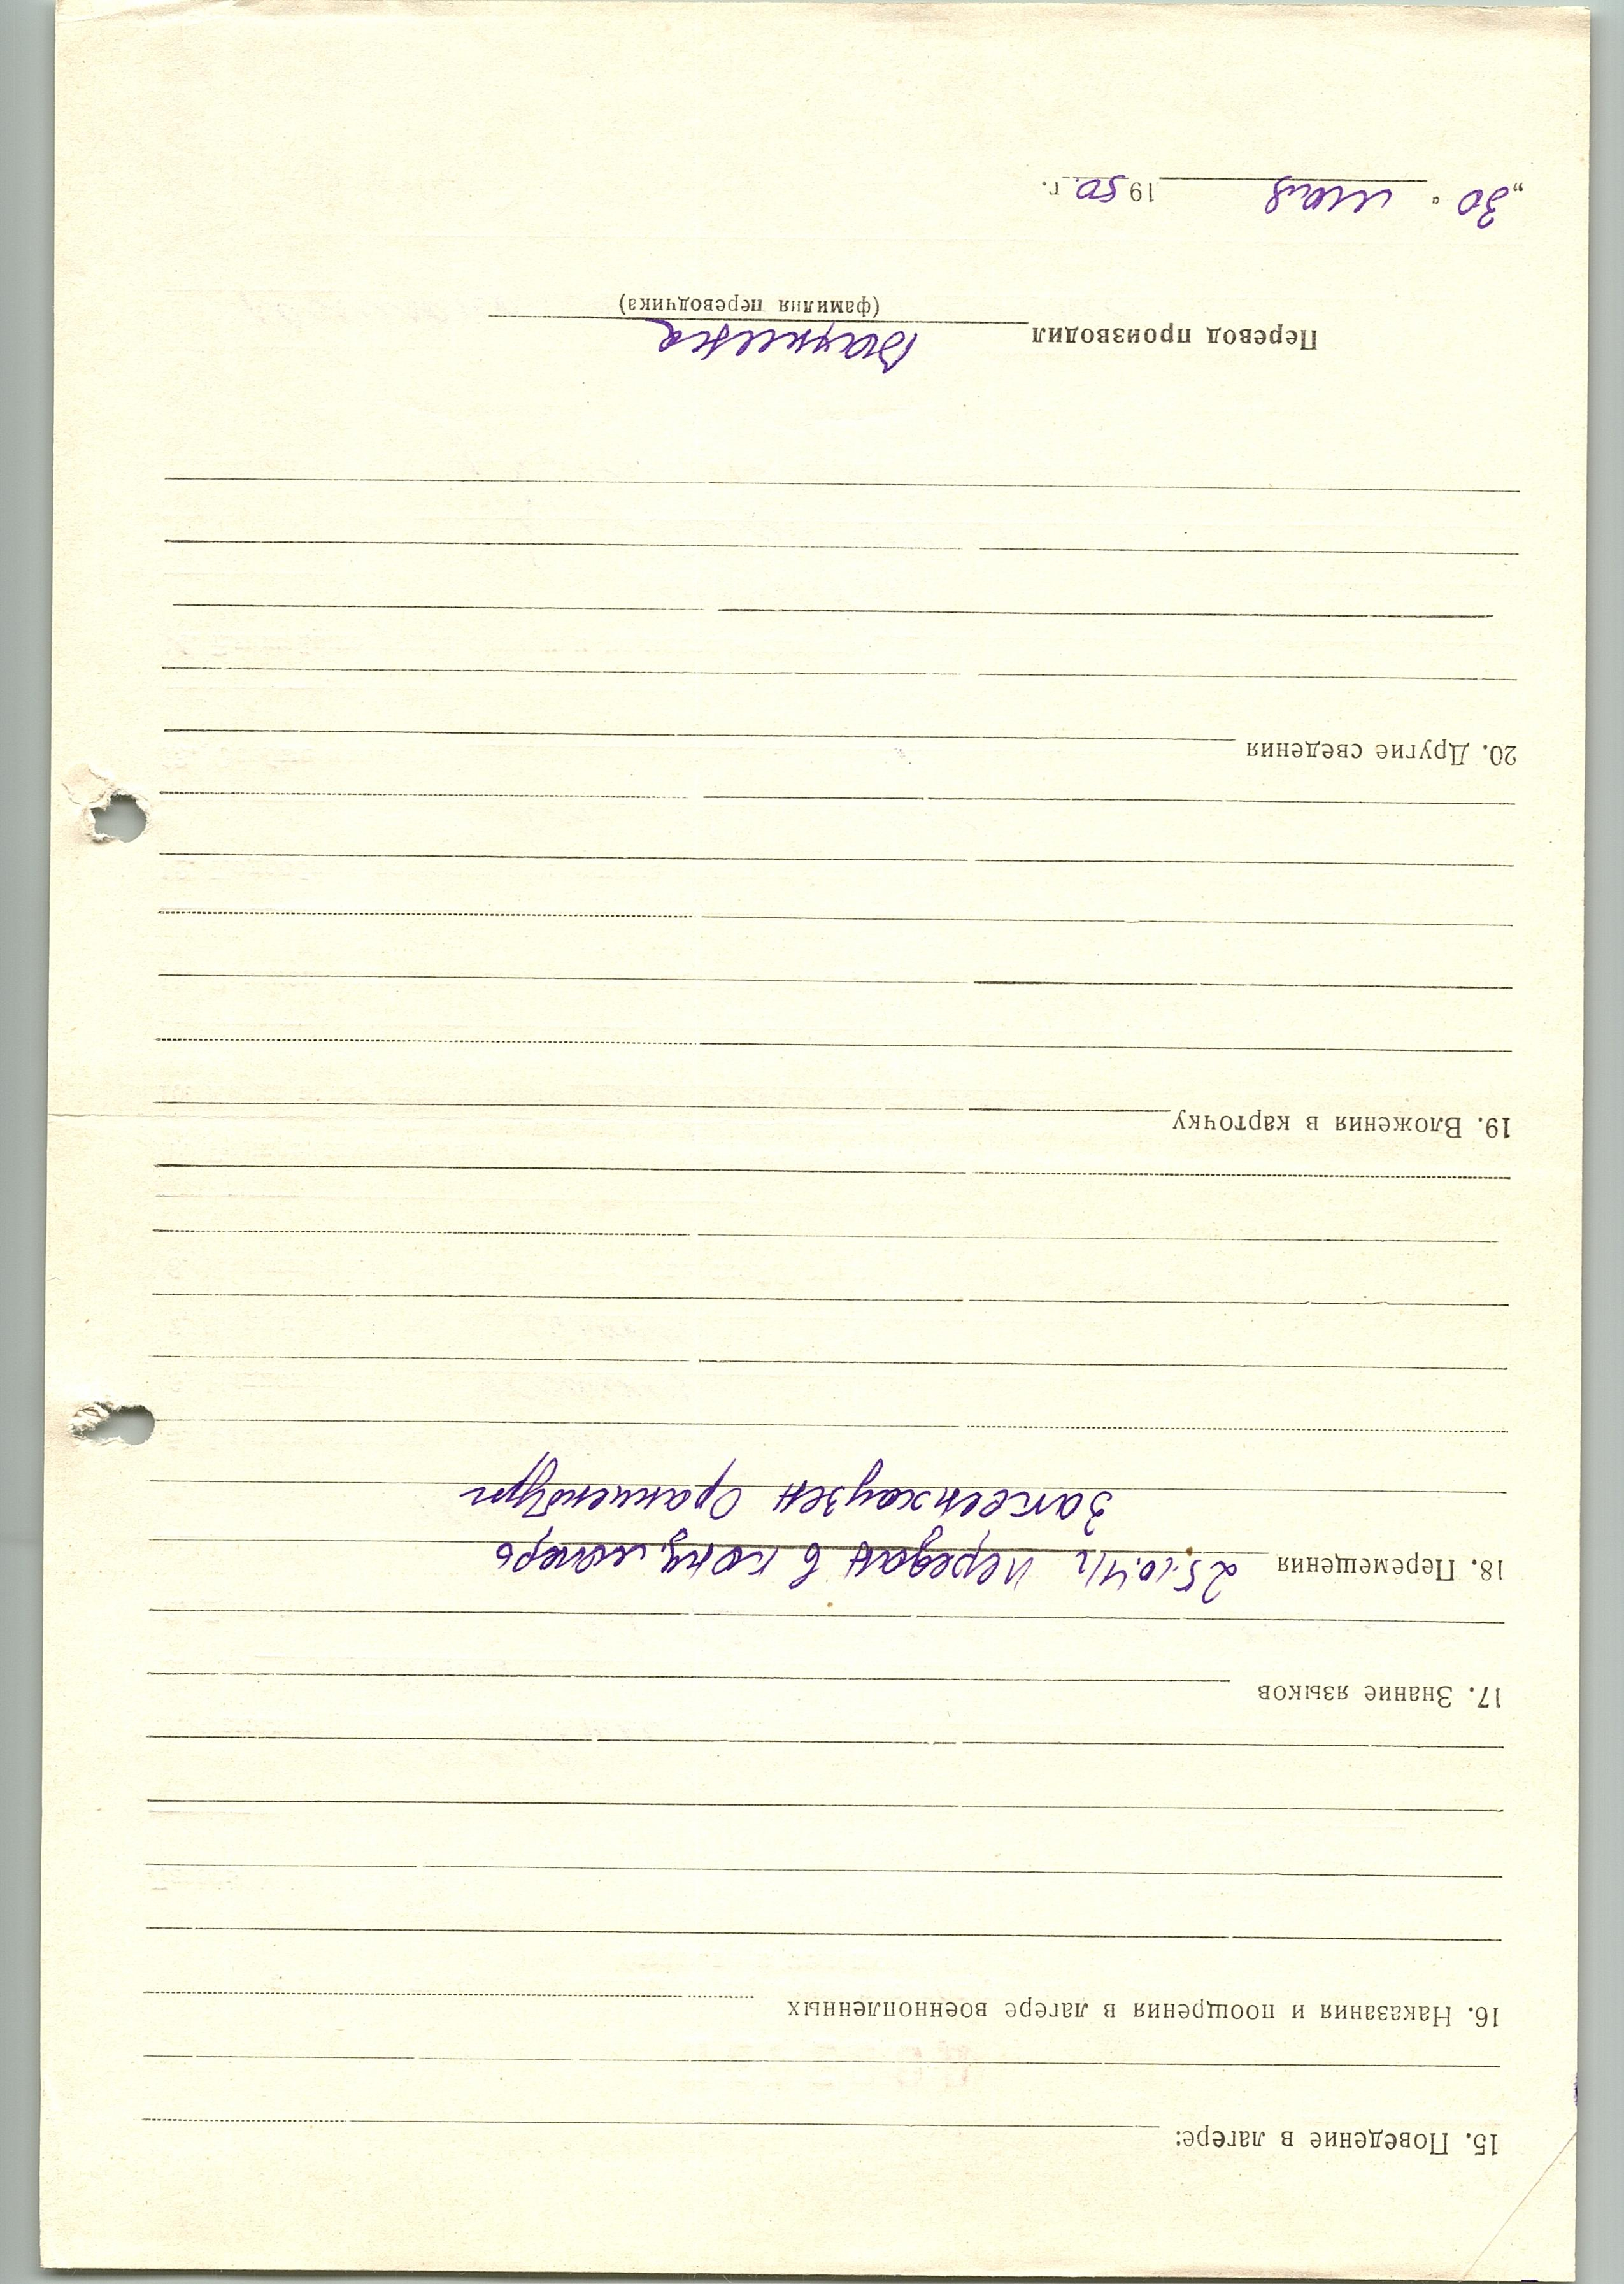 15. Поведение в лагере:
16. Наказания и поощрения в лагере военнопленных
17. Знание языков
18. Перемещения 25.10.41г передан в конц. лагерь
Заксенхаузен Ораниенбург
19. Вложения в карточку
20. Другие сведения
Перевод производил
(фамилия переводчика)
„30“ мая 1950 г.